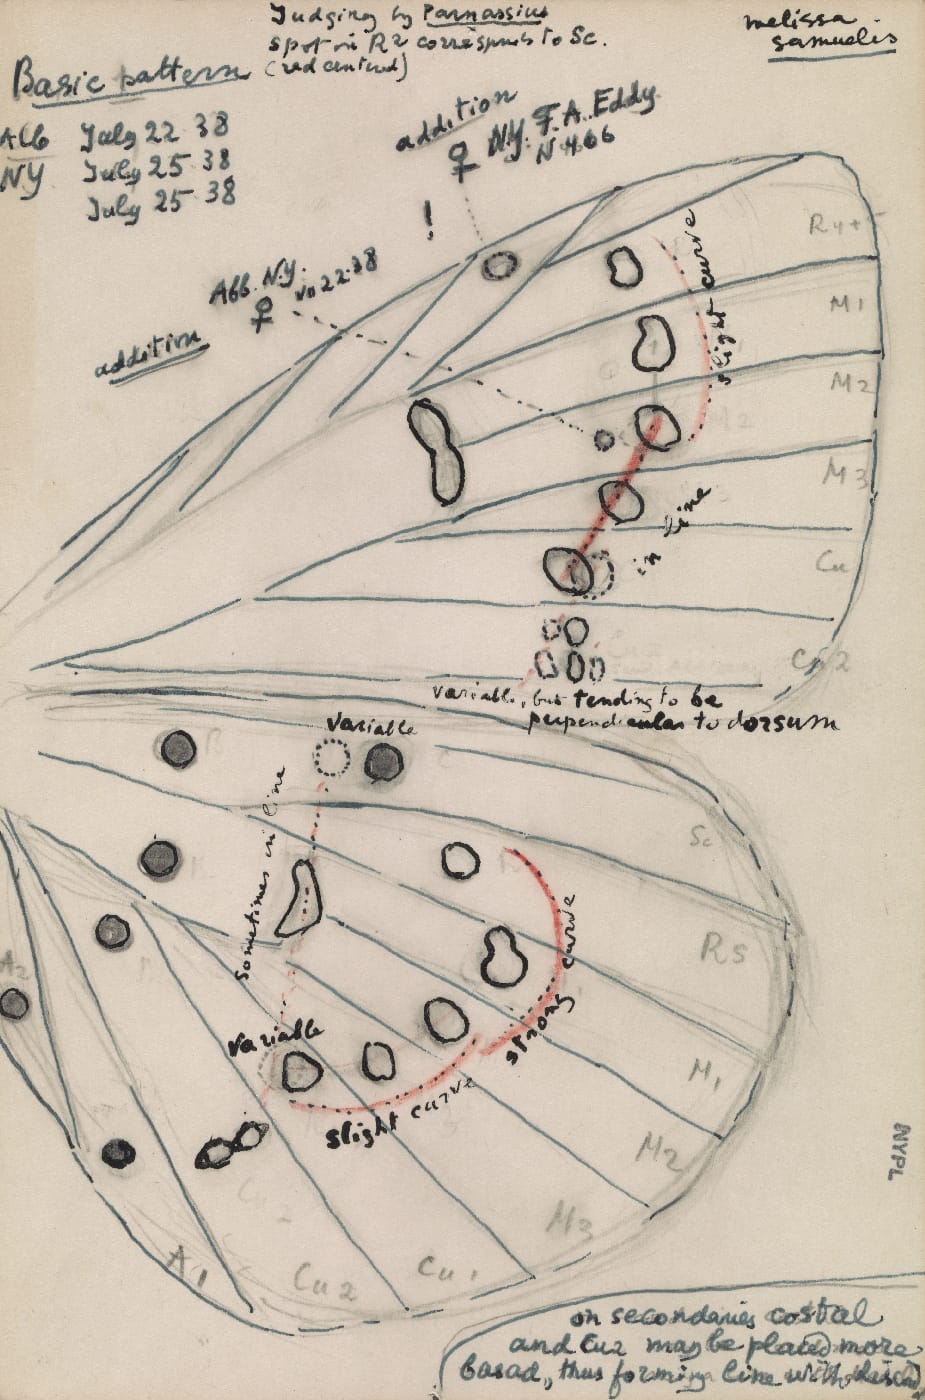 Judging by Parnassius
spot in R2 corresponds to Sc.
(red centred)
melissa
samuelis
Basic pattern
Alb July 22 38
NY July 25 38
July 25 38
addition
♀ N.Y. F.A. Eddy
N 466
!
Alb. N.Y.
♀ VII 22.38
addition
slight curve
R4+5
M1
M2
M3
in line
Cu
Cu2
variable, but tending to be
perpendicular to dorsum
variable
sometimes in line
Sc
Rs
strong curve
variable
slight curve
A2
M1
M2
M3
Cu1
Cu2
A1
NYPL
on secondaries costal
and Cu2 may be placed more
basad, thus forming line with discal